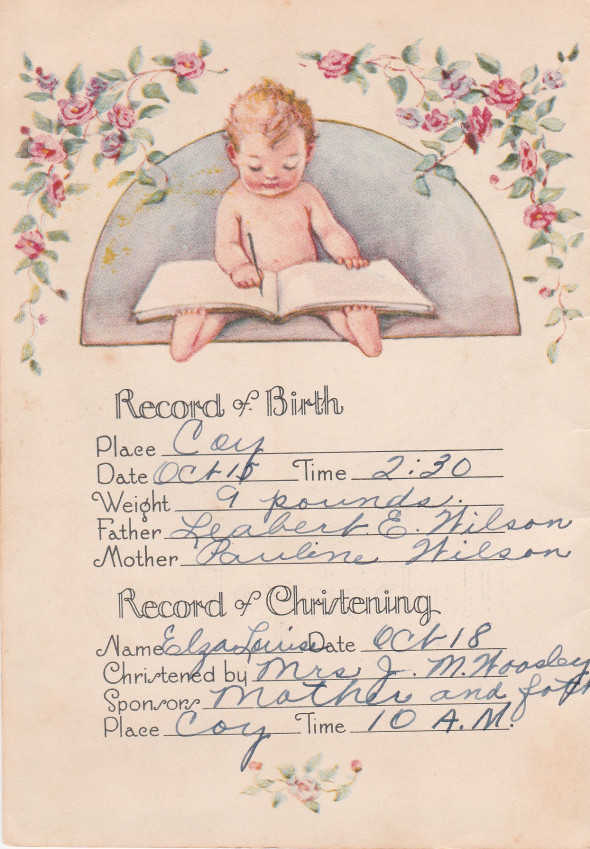 Record of Birth
Place Coy
Date Oct 15 Time 2:30
Weight 9 pounds.
Father Leabert E. Wilson
Mother Pauline Wilson
Record of Christening
Name Elza Louise Date Oct 18
Christened by Mrs J. M. Woosley
Sponsors Mother and
Place Coy Time 10 A.M.